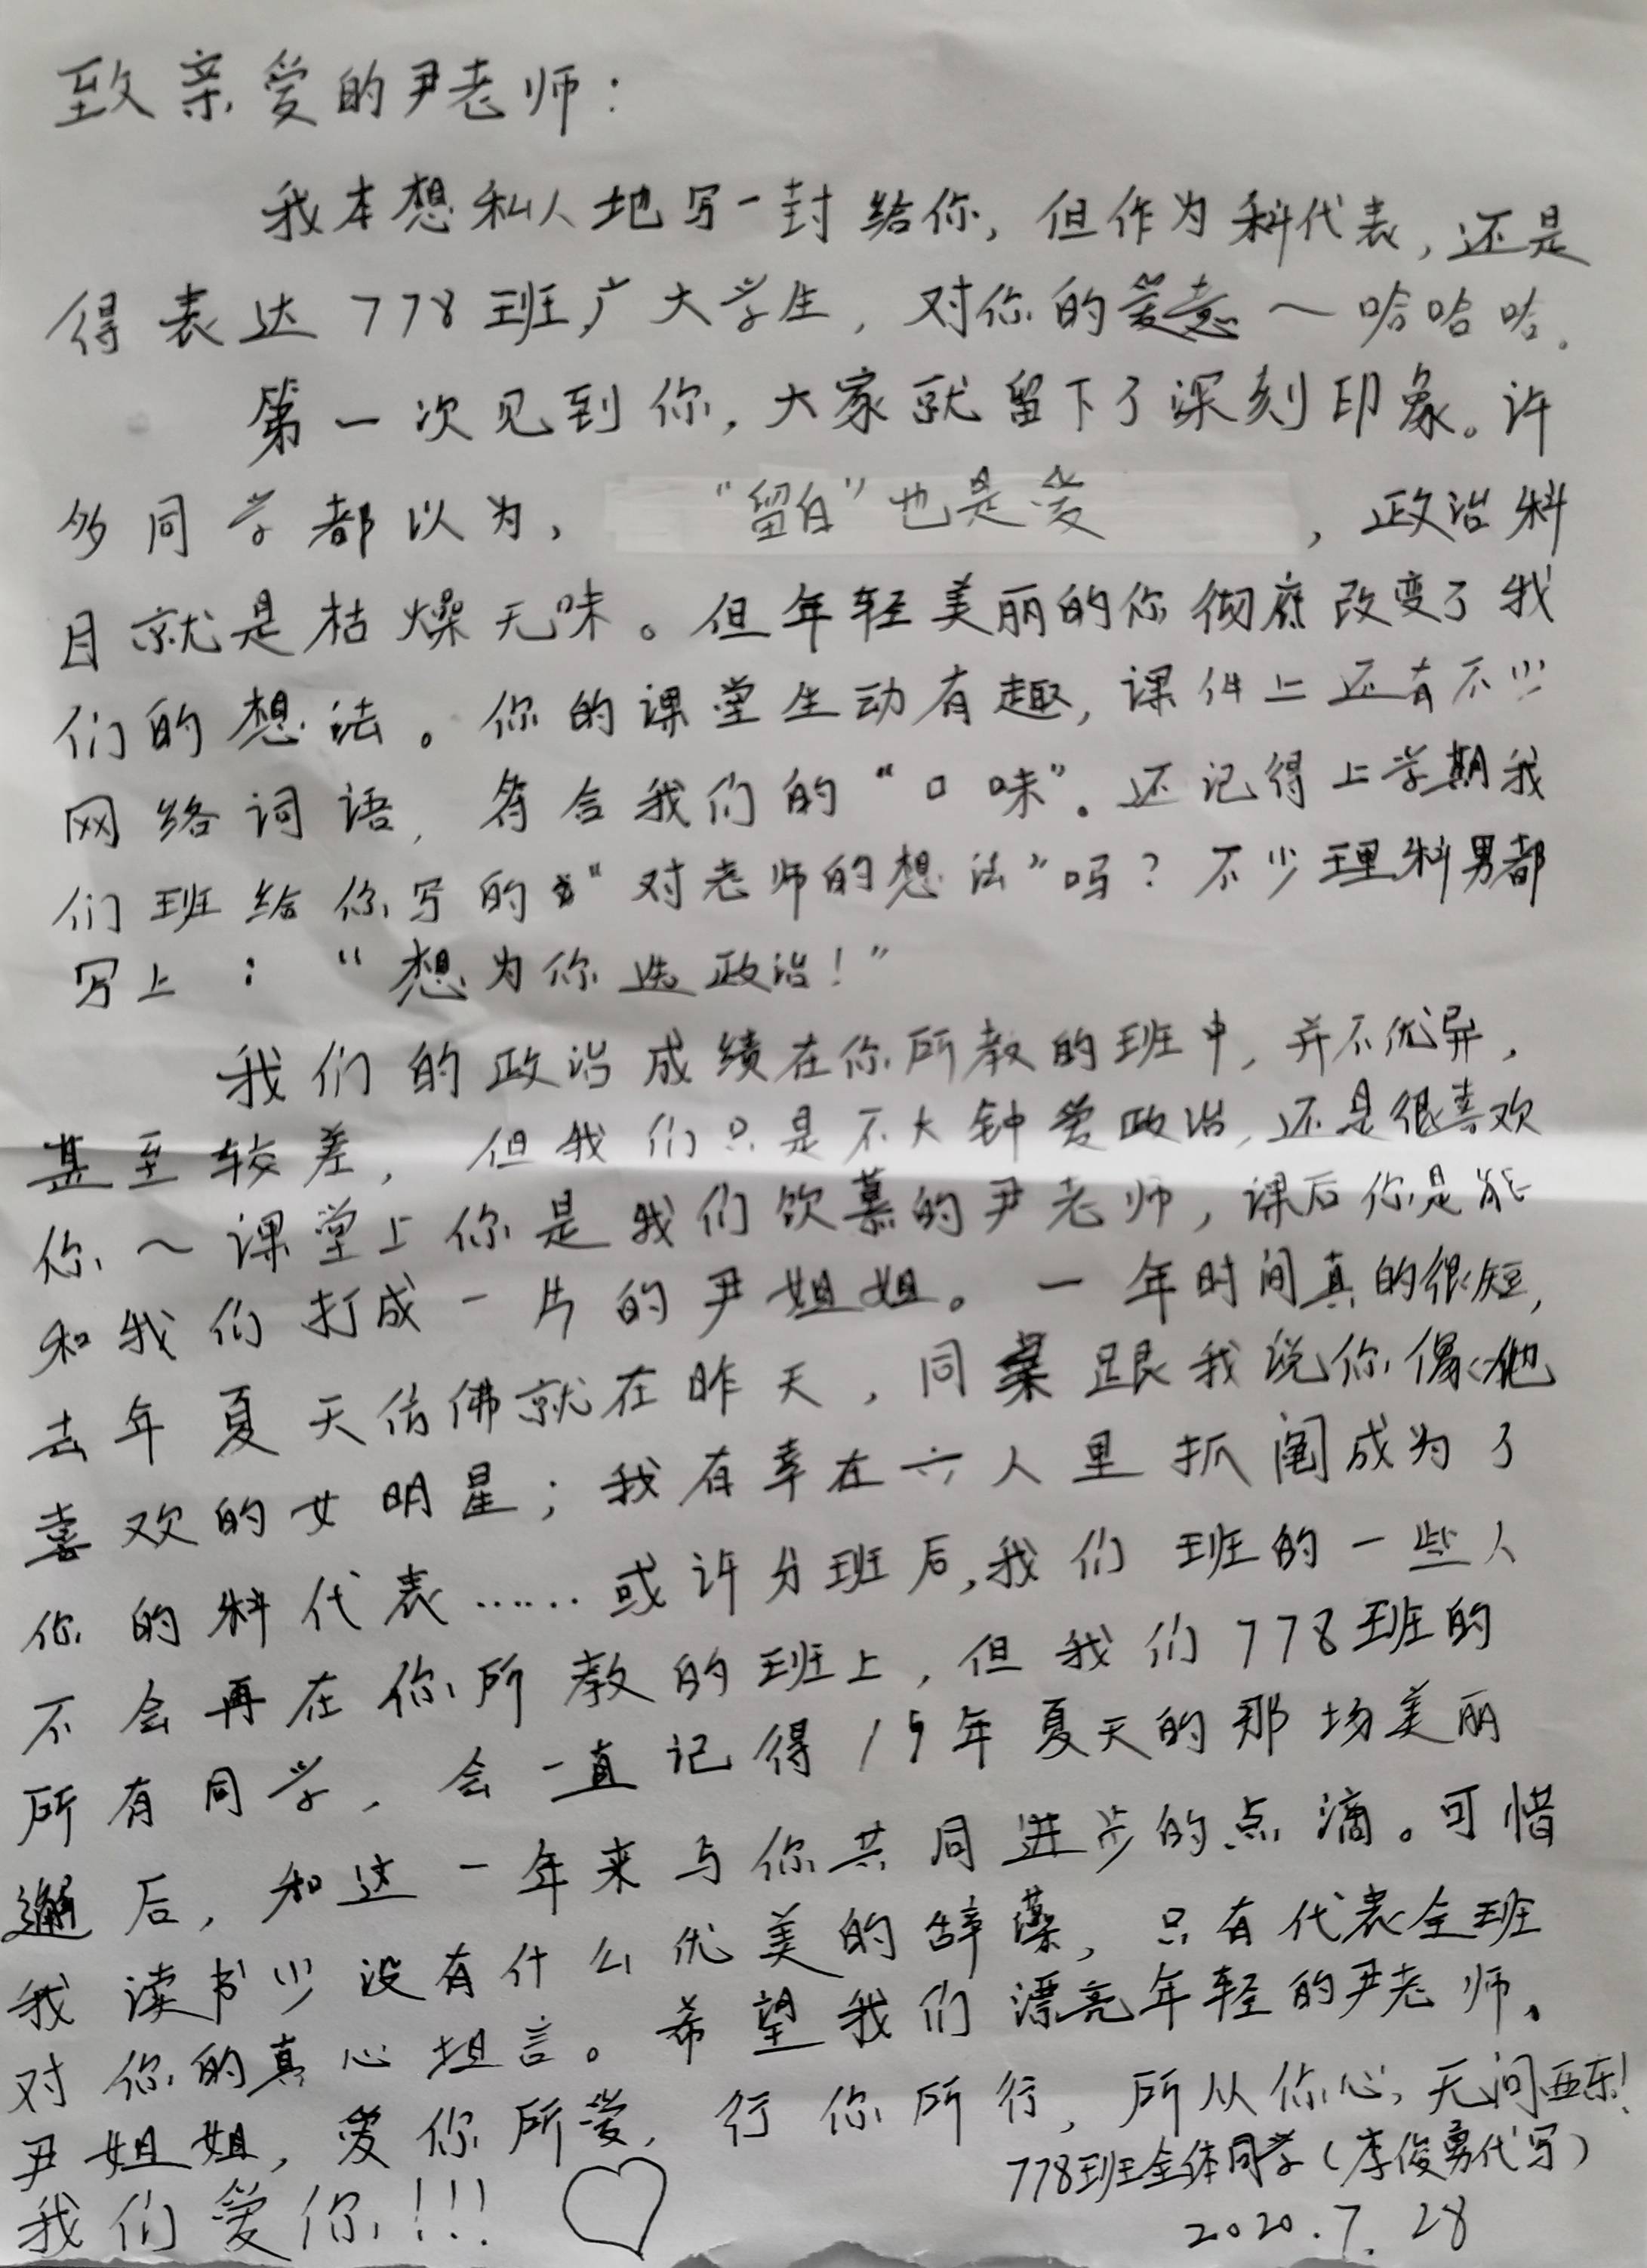 致亲爱的尹老师：
我本想私人地写一封给你，但作为科代表，还是
得表达778班广大学生，对你的爱意～哈哈哈。
第一次见到你，大家就留下了深刻印象。许
多同学都以为，“留白”也是爱，政治科
目就是枯燥无味。但年轻美丽的你彻底改变了我
们的想法。你的课堂生动有趣，课件上还有不少
网络词语，符合我们的“口味”。还记得上学期我
们班给你写的“对老师的想法”吗？不少理科男都
写上：“想为你选政治！”
我们的政治成绩在你所教的班中，并不优异，
甚至较差，但我们只是不大钟爱政治，还是很喜欢
你～课堂上你是我们饮慕的尹老师，课后你是能
和我们打成一片的尹姐姐。一年时间真的很短，
去年夏天仿佛就在昨天，同桌跟我说你像他
喜欢的女明星；我有幸在六人里抓阄成为了
你的科代表……或许分班后，我们班的一些人
不会再在你所教的班上，但我们778班的
所有同学，会一直记得19年夏天的那场美丽
邂后，和这一年来与你共同进步的点滴。可惜
我读书少没有什么优美的辞藻，只有代表全班
对你的真心坦言。希望我们漂亮年轻的尹老师、
尹姐姐，爱你所爱，行你所行，所从你心，无问西东！
我们爱你！！！
778班全体同学（李俊勇代写）
2020.7.28